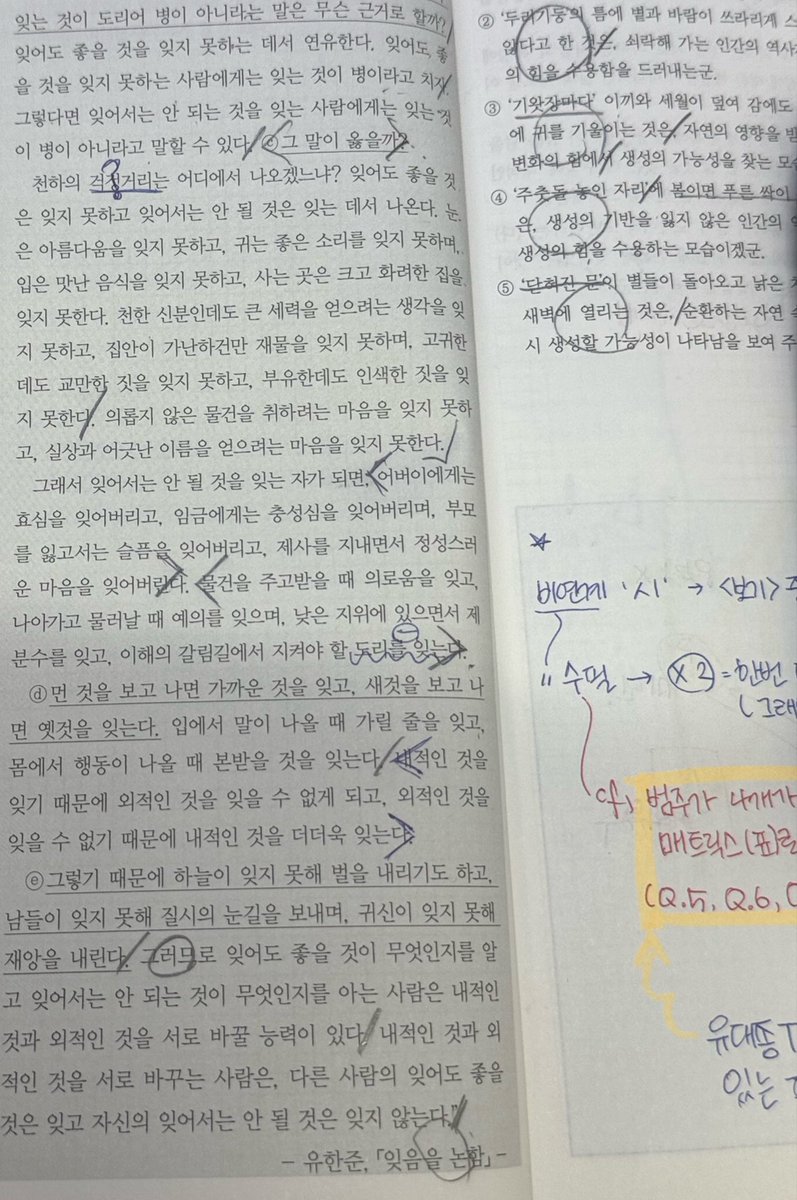 잊는 것이 도리어 병이 아니라는 말은 무슨 근거로 할까?
잊어도 좋을 것을 잊지 못하는 데서 연유한다. 잊어도 좋
을 것을 잊지 못하는 사람에게는 잊는 것이 병이라고 치자.
그렇다면 잊어서는 안 되는 것을 잊는 사람에게는 잊는 것
이 병이 아니라고 말할 수 있다. ⓒ그 말이 옳을까?
천하의 걱정거리는 어디에서 나오겠느냐? 잊어도 좋을 것
은 잊지 못하고 잊어서는 안 될 것은 잊는 데서 나온다. 눈
은 아름다움을 잊지 못하고, 귀는 좋은 소리를 잊지 못하며,
입은 맛난 음식을 잊지 못하고, 사는 곳은 크고 화려한 집을
잊지 못한다. 천한 신분인데도 큰 세력을 얻으려는 생각을 잊
지 못하고, 집안이 가난하건만 재물을 잊지 못하며, 고귀한
데도 교만한 짓을 잊지 못하고, 부유한데도 인색한 짓을 잊
지 못한다. 의롭지 않은 물건을 취하려는 마음을 잊지 못하
고, 실상과 어긋난 이름을 얻으려는 마음을 잊지 못한다.
그래서 잊어서는 안 될 것을 잊는 자가 되면, 어버이에게는
효심을 잊어버리고, 임금에게는 충성심을 잊어버리며, 부모
를 잃고서는 슬픔을 잊어버리고, 제사를 지내면서 정성스러
운 마음을 잊어버린다. 물건을 주고받을 때 의로움을 잊고,
나아가고 물러날 때 예의를 잊으며, 낮은 지위에 있으면서 제
분수를 잊고, 이해의 갈림길에서 지켜야 할 도리를 잊는다.
ⓓ먼 것을 보고 나면 가까운 것을 잊고, 새것을 보고 나
면 옛것을 잊는다. 입에서 말이 나올 때 가릴 줄을 잊고,
몸에서 행동이 나올 때 본받을 것을 잊는다. 내적인 것을
잊기 때문에 외적인 것을 잊을 수 없게 되고, 외적인 것을
잊을 수 없기 때문에 내적인 것을 더더욱 잊는다.
ⓔ그렇기 때문에 하늘이 잊지 못해 벌을 내리기도 하고,
남들이 잊지 못해 질시의 눈길을 보내며, 귀신이 잊지 못해
재앙을 내린다. 그러므로 잊어도 좋을 것이 무엇인지를 알
고 잊어서는 안 되는 것이 무엇인지를 아는 사람은 내적인
것과 외적인 것을 서로 바꿀 능력이 있다. 내적인 것과 외
적인 것을 서로 바꾸는 사람은, 다른 사람의 잊어도 좋을
것은 잊고 자신의 잊어서는 안 될 것은 잊지 않는다."
- 유한준, 「잊음을 논함」 -
② '두리기둥의 틈에 별과 바람이 쓰라리게 스
않다고 한 것은, 쇠락해 가는 인간의 역사
의 힘을 수용함을 드러내는군.
③ '기왓장마다' 이끼와 세월이 덮여 감에도
에 귀를 기울이는 것은, 자연의 영향을 받
변화의 힘에서 생성의 가능성을 찾는 모습
④ '주춧돌 놓인 자리'에 봄이면 푸른 싹이
은, 생성의 기반을 잃지 않은 인간의
생성의 힘을 수용하는 모습이겠군.
⑤ '닫혀진 문'이 별들이 돌아오고 낡은
새벽에 열리는 것은, 순환하는 자연
시 생성할 가능성이 나타남을 보여 주
비연계 '시' → <보기>
" 수필 → ×2 = 한번
(그래
cf) 범주가 나개가
매트릭스(표)로
(Q.5, Q.6,
유대종 T
있는